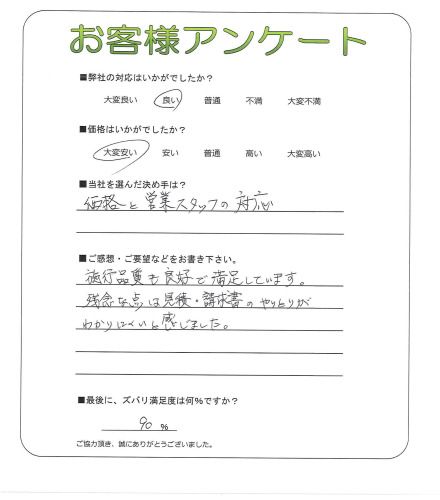 お客様アンケート
■弊社の対応はいかがでしたか？
大変良い 良い 普通 不満 大変不満
■価格はいかがでしたか？
大変安い 安い 普通 高い 大変高い
■当社を選んだ決め手は？
価格と営業スタッフの対応
■ご感想・ご要望などをお書き下さい。
施行品質も良好で満足しています。
残念な点は見積・請求書のやりとりが
わかりにくいと感じました。
■最後に、ズバリ満足度は何%ですか？
90 %
ご協力頂き、誠にありがとうございました。